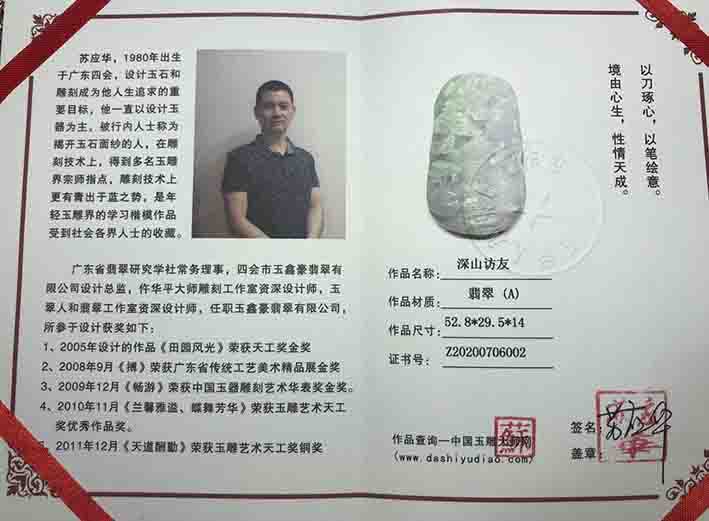 苏应华，1980年出生
于广东四会，设计玉石和
雕刻成为他人生追求的重
要目标，他一直以设计玉
器为主，被行内人士称为
揭开玉石面纱的人，在雕
刻技术上，得到多名玉雕
界宗师指点，雕刻技术上
更有青出于蓝之势，是年
轻玉雕界的学习楷模作品
受到社会各界人士的收藏。
广东省翡翠研究学社常务理事，四会市玉鑫豪翡翠有
限公司设计总监，仵华平大师雕刻工作室资深设计师，玉
翠人和翡翠工作室资深设计师，任职玉鑫豪翡翠有限公司，
所参于设计获奖如下：
1、2005年设计的作品《田园风光》荣获天工奖金奖
2、2008年9月《搏》荣获广东省传统工艺美术精品展金奖
3、2009年12月《畅游》荣获中国玉器雕刻艺术华表奖金奖。
4、2010年11月《兰馨雅谧、蝶舞芳华》荣获玉雕艺术天工
奖优秀作品奖。
、2011年12月《天道酬勤》荣获玉雕艺术天工奖铜奖
以刀琢心，以笔绘意。
境由心生，性情天成。
作品名称：深山访友
作品材质：翡翠（A）
作品尺寸：52.8*29.5*14
证书号：Z20200706002
作品查询—中国玉雕大师网
(www.dashiyudiao.com)
蘇
签名：苏应华
盖章：